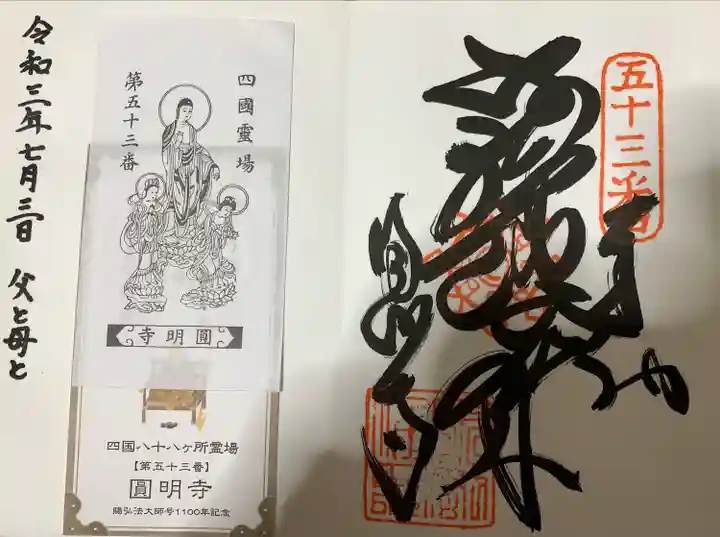 五十三番
奉
阿弥陀如来
圓明寺
四國靈場
第五十三番
圓明寺
四国八十八ヶ所霊場
【第五十三番】
圓明寺
賜弘法大師号1100年記念
令和三年七月三日 父と母と